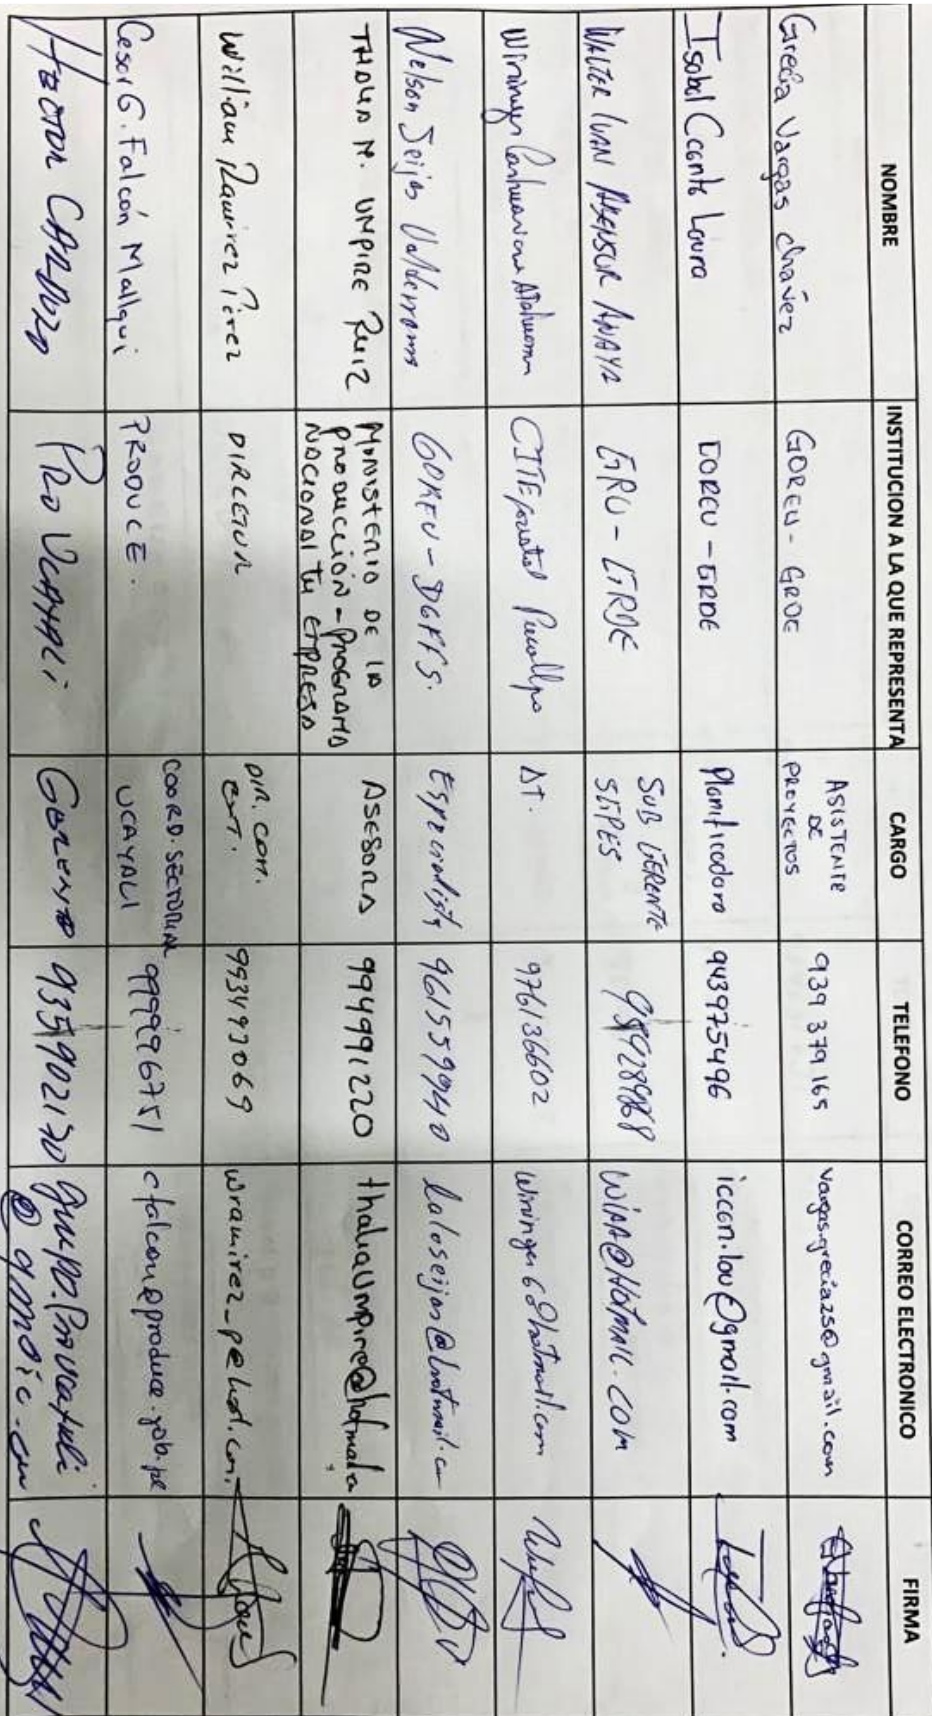 NOMBRE INSTITUCION A LA QUE REPRESENTA CARGO TELEFONO CORREO ELECTRONICO FIRMA
Grecia Vargas Chavez GOREU - GRDE ASISTENTE DE PROYECTOS 939 379 165 vargas.grecia25@gmail.com
Isabel Cconto Laura GOREU - GRDE Planificadora 943975496 iccon.lau@gmail.com
WALTER IVAN ANAYA GRU - GRDE SUB GERENTE WIAA@HOTMAIL.COM
CITEforestal Pucallpa AT. 976136602
Nelson Seijas Valderrama GOREU - DGFFS. Especialista 961559940 laloseijas@hotmail.co
M. UMPIRE RUIZ MINISTERIO DE LA
PRODUCCIÓN - PROGRAMA
NACIONAL TU EMPRESA ASESORA 994991220
William Ramirez Pérez DIRCETUR DIR. COM. EXT. 993493069
Cesar G. Falcón Mallqui PRODUCE. COORD. SECTORIAL UCAYALI 999996751 cfalcon@produce.gob.pe
HECTOR PRO UCAYALI GERENTE 935902170